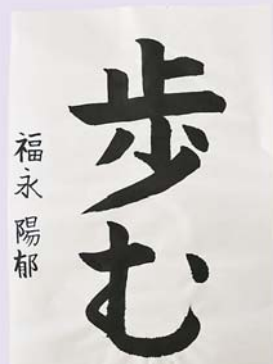 歩む
福永陽郁